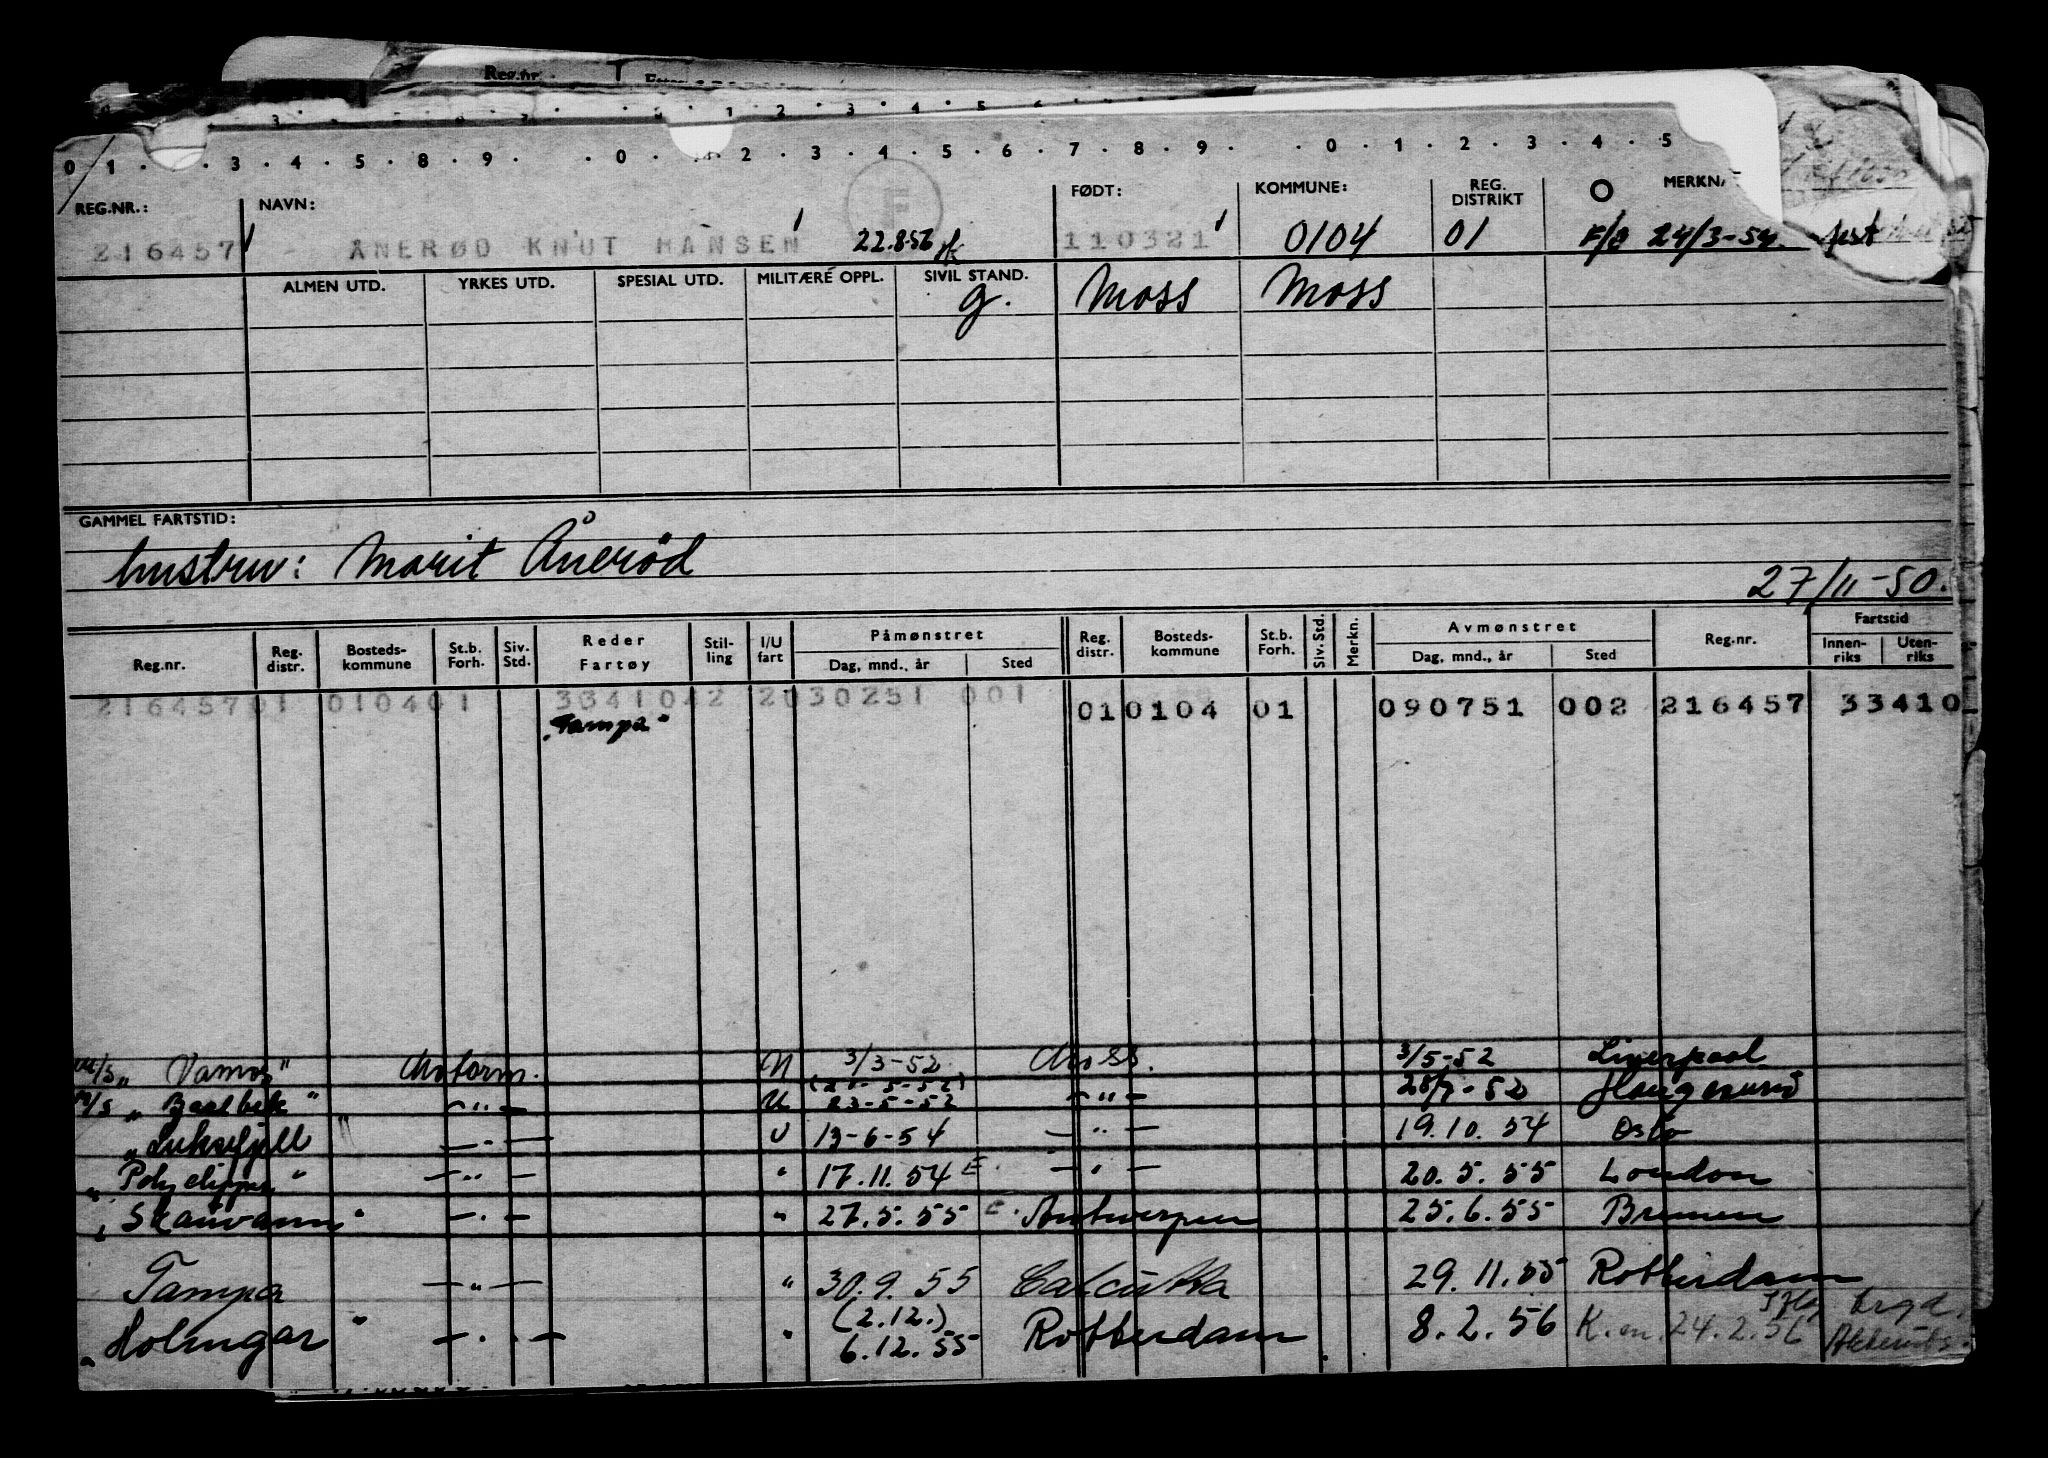 Reg.nr.
0 1 . . 3 . 4 . 5 . 8 . 9 . . 0 . 2 . 3 . 4 . 5 . 6 . 7 . 8 . 9 . . 0 . 1 . 2 . 3 . 4 . 5
REG.NR.: NAVN: F FØDT: KOMMUNE: REG. DISTRIKT MERKN
216457 ANERØD KNUT HANSEN 22.8.56 110321 0104 01 F/B 24/3-54.
ALMEN UTD. YRKES UTD. SPESIAL UTD. MILITÆRE OPPL. SIVIL STAND.
g. Moss Moss
GAMMEL FARTSTID:
hustru: Marit Ånerød
27/11-50.
Reg.nr. Reg. distr. Bosteds-kommune St.b. Forh. Siv. Std. Reder Fartøy Stil-ling I/U fart Påmønstret Dag, mnd., år Sted Reg. distr. Bosteds-kommune St.b. Forh. Siv. Std. Merkn. Avmønstret Dag, mnd., år Sted Reg.nr. Fartstid Innen-riks Uten-riks
216457 01 0104 01 3341042 2 030251 001 01 0104 01 090751 002 216457 33410
"Tampa"
M/S "Vamos" Motorm. U 3/3-52 Moss. 3/5-52 Liverpool
M/S "Baalbek" -"- U 23-5-52 -"- 28/7-52 Haugesund
"Luksefjell" -"- U 19-6-54 -"- 19.10.54 Oslo
"Polyclipper" -"- " 17.11.54 E. -"- 20.5.55 London
"Skauvann" -"- " 27.5.55 E. Antwerpen 25.6.55 Bremen
Tampa -"- " 30.9.55 Calcutta 29.11.55 Rotterdam
(2.12.)
"Holmgar" -"- " 6.12.55 Rotterdam 8.2.56 K.en. 24.2.56